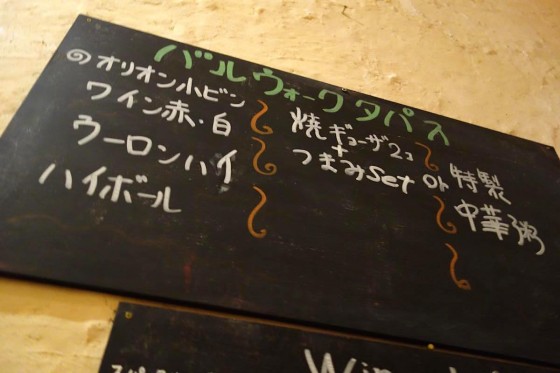 バルウォーク タパス
オリオン小ビン
ワイン赤・白
ウーロンハイ
ハイボール
焼ギョーザ2コ
+
つまみset or 特製
中華粥